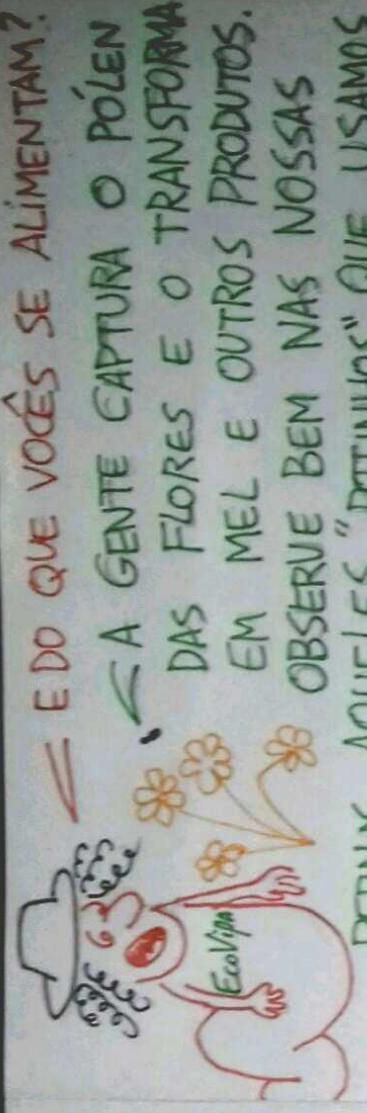 E DO QUE VOCÊS SE ALIMENTAM?
A GENTE CAPTURA O PÓLEN
DAS FLORES E O TRANSFORMA
EM MEL E OUTROS PRODUTOS.
OBSERVE BEM NAS NOSSAS
AQUELES "POTINHOS" QUE USAMOS
EcoVida